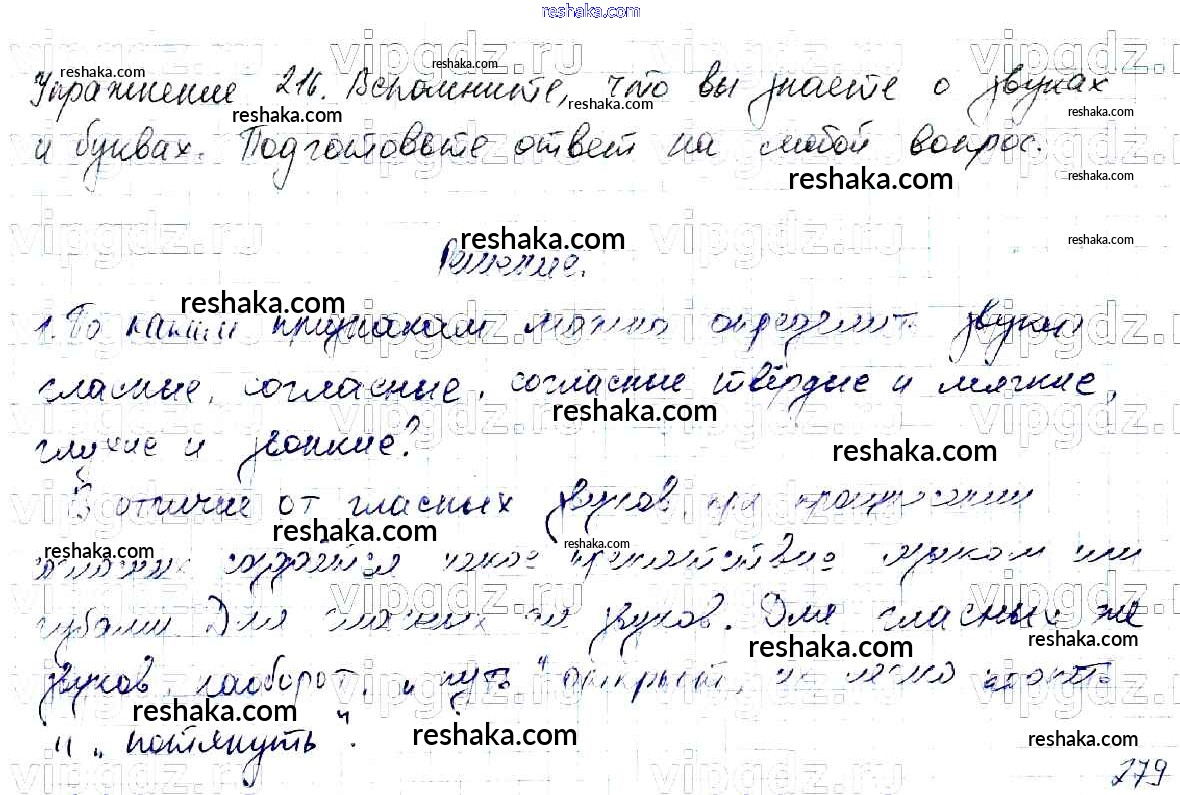 reshaka.com
Упражнение 216. Вспомните, что вы знаете о звуках
и буквах. Подготовьте ответ на любой вопрос.
Решение.
1. По каким признакам можно определить звуки
гласные, согласные, согласные твёрдые и мягкие,
глухие и звонкие?
В отличие от гласных звуков, при произнесении
создаётся препятствие языком или
губами Для звуков. Для гласных же
звуков, наоборот, "путь" открыт, их легко
и "потянуть".
279